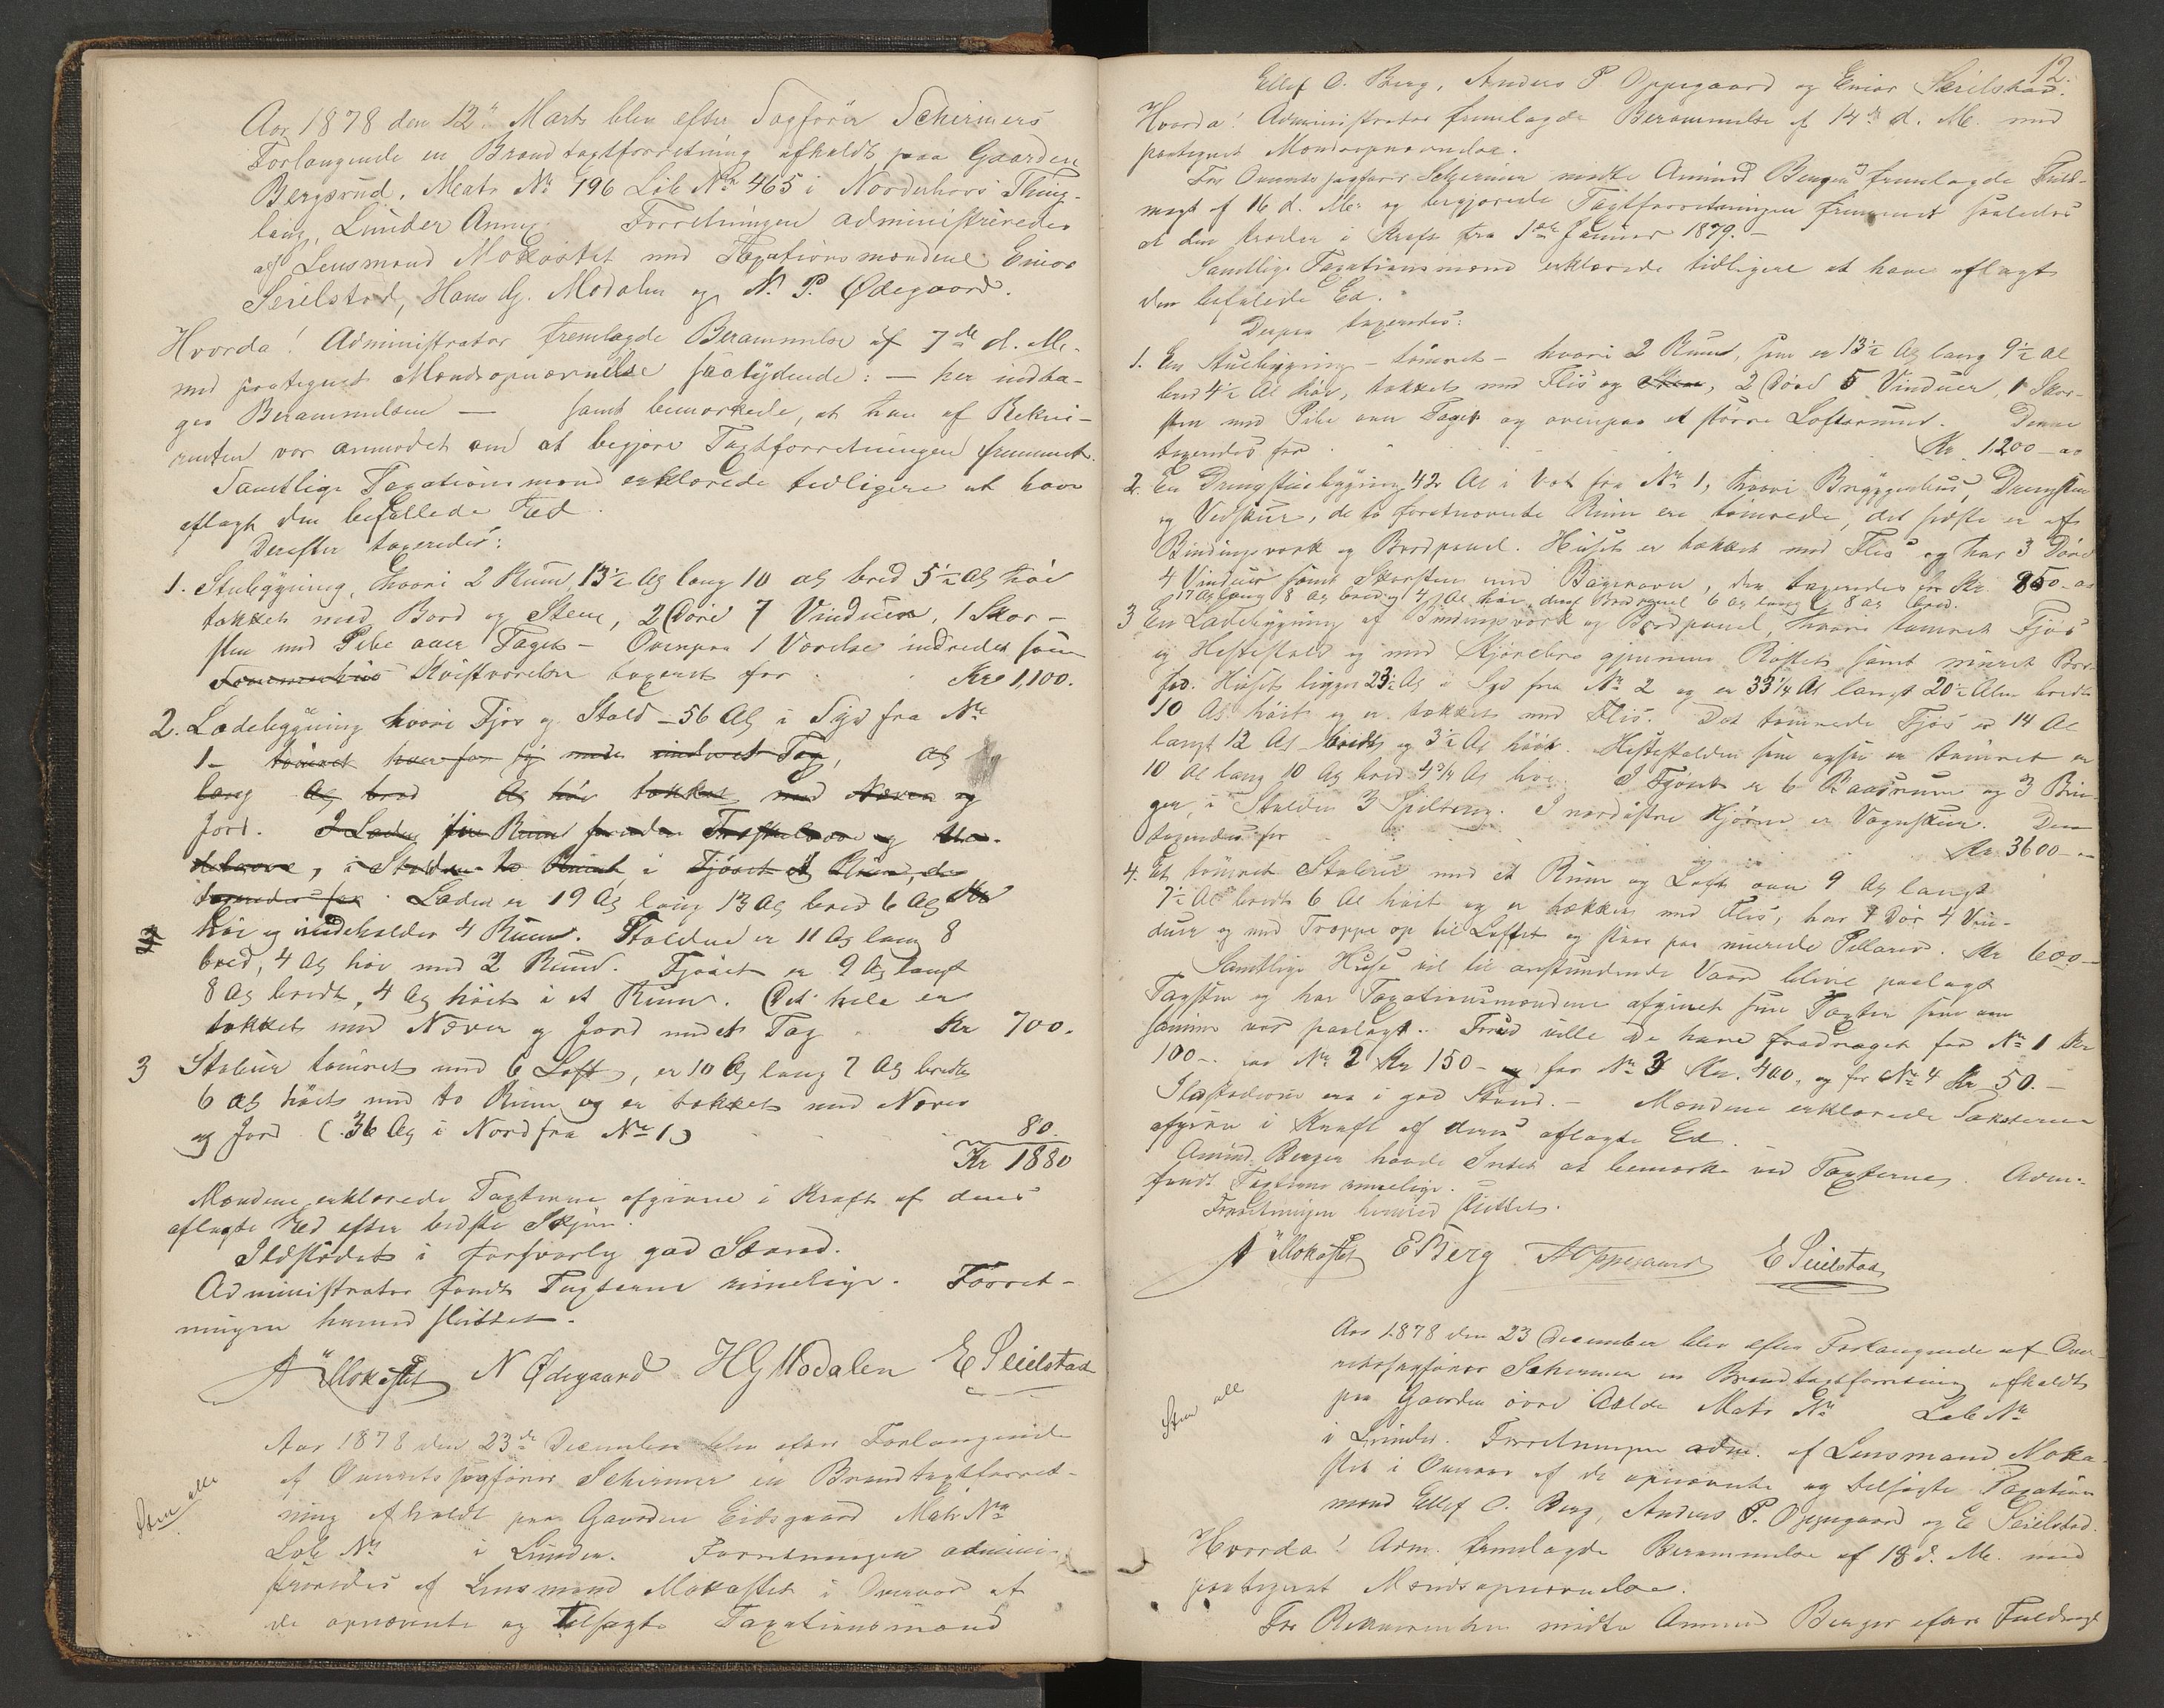 Aar 1878 den 12te Marts blev efter Sagfører Schirmers
Forlangende en Brandtaxtforretning afholdt paa Gaarden
Bergsrud, Matr No 196 Løb No 465 i Norderhovs Thing-
laug, Lunder Annex. Forretningen administreredes
af Lensmand Mokastet med Taxationsmændene Einar
Seielstad, Hans G. Modalen og N. P. Ødegaard.
Hvorda! Administrator fremlagde Berammelse af 7de d. M.
med paategnet Mændsopnævnelse saalydende: — her indta-
ges Berammelsen — samt bemærkede, at han af Rekvi-
renten var anmodet om at begjøre Taxtforretningen fremmet.
Samtlige Taxationsmænd erklærede tidligere at have
aflagt den befallede Ed.
Derefter taxeredes:
1. Stuebygning, hvori 2 Rum, 13½ Al lang 10 al bred 5½ Al høi
takket med Bord og Steen, 2 Døre 7 Vinduer, 1 Skor-
sten med Pibe over Taget — Ovenpaa 1 Værelse indredet som
Kvistværelse taxeret for Kr 1,100.
2. Ladebygning hvori Fjøs og Stald — 56 Al i Syd fra No
1 — tømret hver for sig under et Tag, Al
lang Al bred Al høi tækket med Næver og
Jord. I Laden fire Rum foruden og
, i Stalden to Rum i Fjøset et Rum, de
taxeredes for . Laden er 19 Al lang 13 Al bred 6 Al Kr
høi og indeholder 4 Rum. Stalden er 11 Al lang 8
bred, 4 Al høi med 2 Rum. Fjøset er 9 Al langt
8 Al bredt, 4 Al høit i et Rum. Det hele er
tækket med Næver og Jord under et Tag Kr 700.
3 Stabur tømret med Loft, er 10 Al lang 7 Al bredt
6 al høit med to Rum og er tækket med Næver
og Jord (36 Al i Nord fra No 1) 80.
Kr 1880
Mændene erklærede Taxterne afgivne i Kraft af deres
aflagte Ed efter bedste Skjøn.
Ildstedet i forsvarlig god Stand.
Administrator fandt Taxterne rimelige. Forret-
ningen hermed sluttet.
A Mokastet N Ødegaard HG Modalen E Seielstad
Aar 1878 den 23de December blev efter Forlangende
af Overretssagfører Schirmer en Brandtaxtforret-
ning afholdt paa Gaarden Eidsgaard Matr No
Løb No i Lunder. Forretningen admini-
streredes af Lensmand Mokastet i Overvær af
de opnævnte og tilsagte Taxationsmænd
12.
Ellef O. Berg, Anders P Oppegaard og Einar Seielstad.
Hvorda! Administrator fremlagde Berammelse af 14de d. M. med
paategnet Mændsopnævnelse.
For Overretssagfører Schirmer mødte Amund Berger fremlagde Fuld-
magt af 16 d. M. og begjærede Taxtforretningen fremmet saaledes
at den træder i Kraft fra 1ste Januar 1879. —
Samtlige Taxationsmænd erklærede tidligere at have aflagt
den befalede Ed.
Derpaa taxeredes:
1. En Stuebygning — tømret — hvori 2 Rum, som er 13½ Al lang 9½ Al
bred 4½ Al høi, tækket med Flis og Steen, 2 Døre 5 Vinduer, 1 Skor-
sten med Pibe over Taget og ovenpaa et større Loftsrum. Denne
taxeredes for Kr. 1200 —
2. En Drengstuebygning 42 Al i Vest fra No 1, hvori Bryggerhus, Drengstue
og Vedskur, de to førstnævnte Rum ere tømrede, det sidste er af
Bindingsværk og Bordpanel. Huset er tækket med Flis og har 3 Døre
4 Vinduer samt Skorsten med Bagerovn, den taxeredes for Kr. 850 —
17 Al lang 8 Al bred og 4 Al høi, deraf Bordpanel 6 Al lang & 8 Al bred.
3 En Ladebygning af Bindingsværk og Bordpanel, hvori tømret Fjøs
og Hestestald og med Kjørebro gjennem Røstet samt muret
. Huset ligger 23½ Al i Syd fra No 2 og er 33¼ Al langt 20½ Alen bredt
10 Al høit og er tækket med Flis. Det tømrede Fjøs er 14 Al
langt 12 Al bredt og 3½ Al høit. Hestestalden som ogsaa er tømret er
10 Al lang 10 Al bred 4¾ Al høi. I Fjøset er 6 Baasrum og 3 Bin-
ger, i Stalden 3 Spiltoug. I nordøstre Hjørne er Vognskur. Den
taxeredes for Kr. 3600 —
4. Et tømret Stabur med et Rum og Loft over 9 Al langt
7½ Al bredt 6 Al høit og er tækket med Flis, har 1 Dør 4 Vin-
duer og med Trappe op til Loftet og staar paa murede Pillarer. Kr 600 —
Samtlige Huse vil til anstundende Vaar blive paalagt
Tagsten og har Taxationsmændene afgivet sin Taxter som om
samme var paalagt. Trud ville De have fradraget for No 1 Kr
100 — for No 2 Kr 150 — og for No 3 Kr. 400, og for No 4 Kr 50. —
Ildstederne ere i god Stand. — Mændene erklærede Taksterne
afgivne i Kraft af deres aflagte Ed.
Amund Berger havde Intet at bemærke ved Taxterne. Adm.
fandt Taxterne rimelige.
Forretningen hermed sluttet.
A Mokastet E Berg A Oppegaard E Seielstad
Aar 1878 den 23 December blev efter Forlangende af Over-
retssagfører Schirmer en Brandtaxtforretning afholdt
paa Gaarden øvre Matr No Løb No
i Lunder. Forretningen adm. af Lensmand Moka-
stet i Overvær af de opnævnte og tilsagte Taxations
mænd Ellef O. Berg, Anders P. Oppegaard og E Seielstad.
Hvorda! Adm. fremlagde Berammelse af 18 d. M. med
paategnet Mændsopnævnelse.
For Rekvirenten mødte Amund Berger efter Fuldmagt